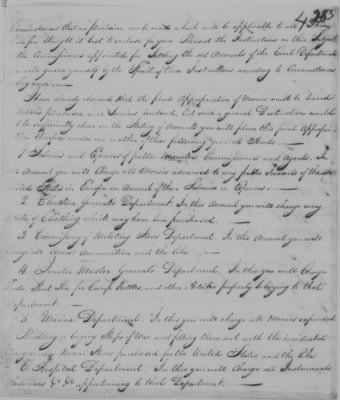 283
Circumstances that no provision can be made which will be applicable to all
have thought it best to enclose for your Perusal the Instructions on this Subject
the Commissioners appointed for Settling the old Accounts of the Civil Departments
will govern yourself by the Spirit of those Instructions according to Circumstances
I have already observed that the final Appropriation of Monies must be
Articles purchased and Services rendered, but such a general Distribution
be sufficiently clear in the Stating of Accounts you will place this final Appropriation
under one or other of these following general Heads.
1 Salaries and Expences of public Ministers Commissioners and Agents. In
Account you will Charge All Monies advanced to any public Servants of the
United States in Europe on Account of their Salaries or Expences.
2 Clothier Generals Department. In this Account you will charge any
of Cloathing which may have been purchased.
3 Commissary of Military Stores Department. In this Account you will
charge all Arms, Ammunition and the like.
4 Quarter Master Generals Department. In this you will Charge
for Camp Kettles, and other Articles properly belonging to that
Department.
5 Marine Department. In this you will charge all Monies expended
Building or buying Ships of War and fitting them out with the incidental
Charges, Naval Stores purchased for the United States and the like
6 Hospital Department. In this you will Charge all Instruments
Medicines &c &c appertaining to that Department.